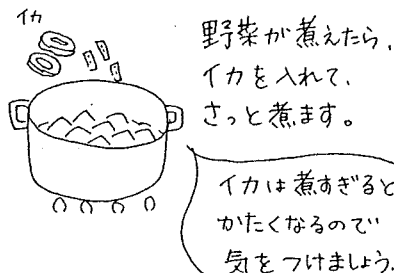 イカ
野菜が煮えたら、
イカを入れて、
さっと煮ます。
イカは煮すぎると
かたくなるので
気をつけましょう。